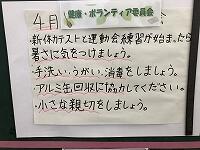 健康・ボランティア委員会
4月
・新体力テストと運動会練習が始まったら
暑さに気をつけましょう。
・手洗い・うがい・消毒をしましょう。
・アルミ缶回収に協力してください。
・小さな親切をしましょう。